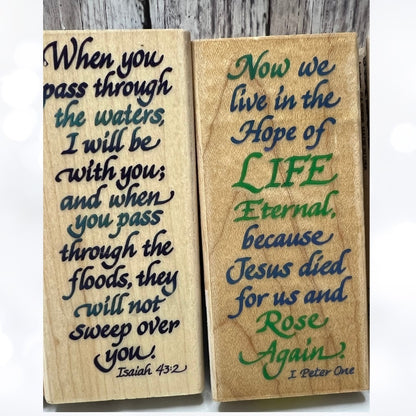 When you
pass through
the waters,
I will be
with you;
and when
you pass
through the
floods, they
will not
sweep over
you.
Isaiah 43:2
Now we
live in the
Hope of
LIFE
Eternal,
because
Jesus died
for us and
Rose
Again.
I Peter One